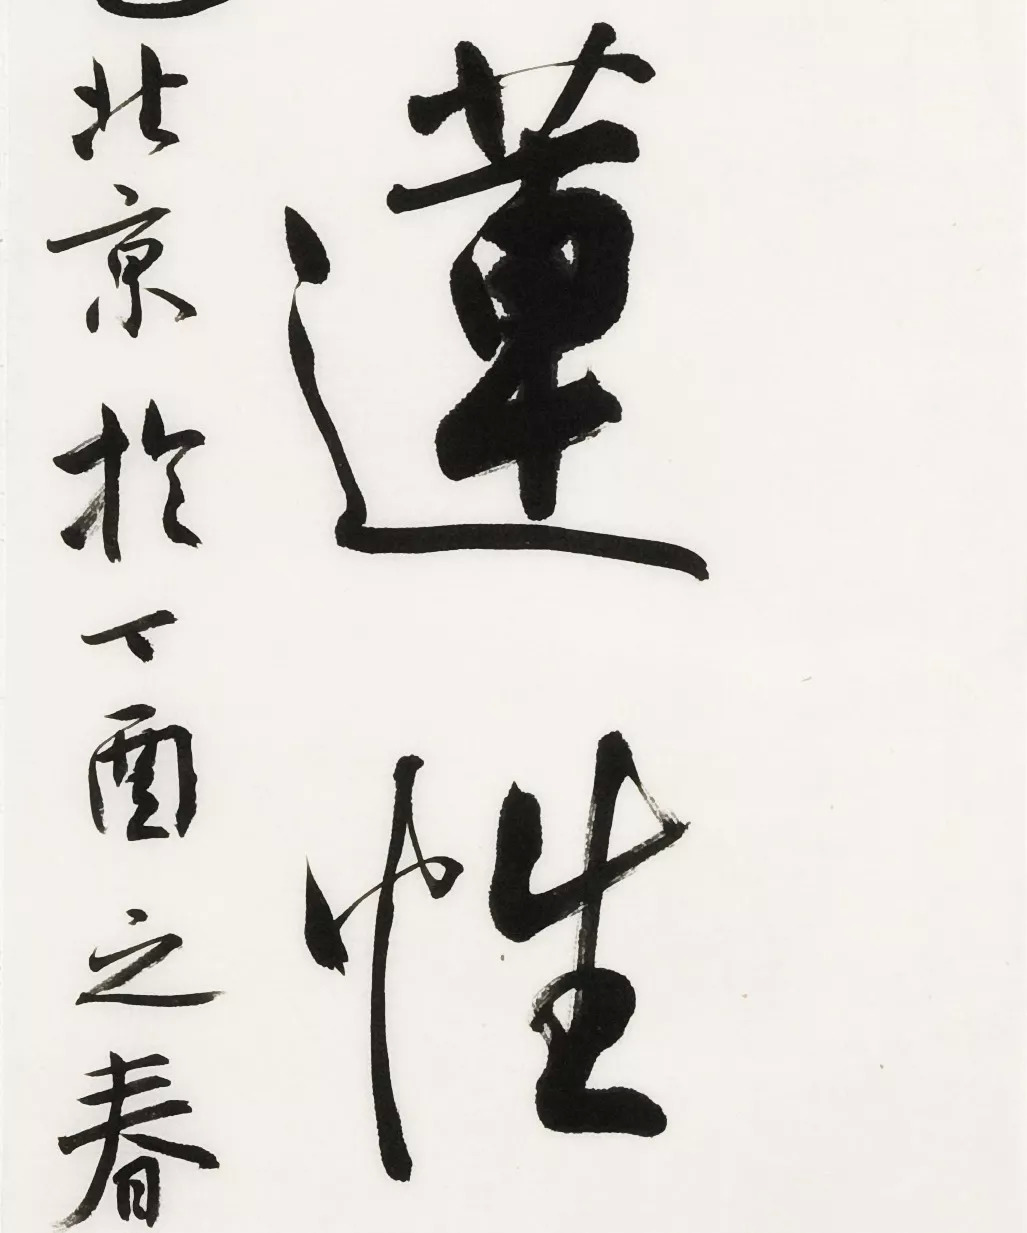 蓮性
北京於丁酉之春